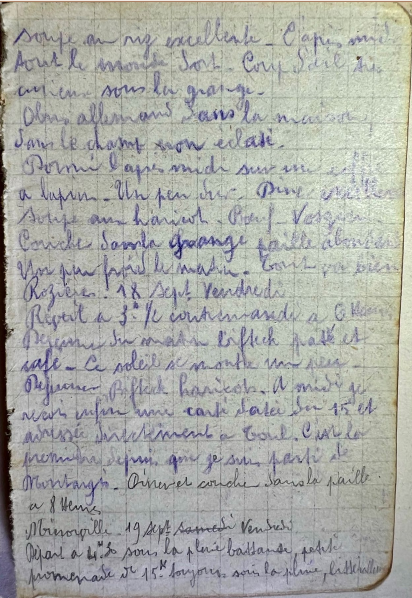 soupe au riz excellente. L'après midi
tout le monde dort. Coup d'œil
curieux sous la grange.
Obus allemand dans la maison,
dans le champ non éclaté.
Dormi l'après midi sur un
a lapin. Un peu dur. Diné
soupe aux haricot. Bœuf
Couche dans la grange paille
Un peu froid le matin. Tout va bien
Rozières. 18 Sept. Vendredi
Réveil a 3h 1/2 contremandé a 6 Heures
Déjeuner du matin bifteck paté et
café. Ce soleil se montre un peu.
Déjeuner Bifteck haricots. A midi je
reçois enfin une carte datée du 15 et
adressé directement a Toul. C'est la
première depuis que je suis parti de
Montargis. Diner et couche dans la paille.
a 8 Heures
19 Sept samedi Vendredi
Départ a sous la pluie battante, petite
promenade de 15K toujours sous la pluie,